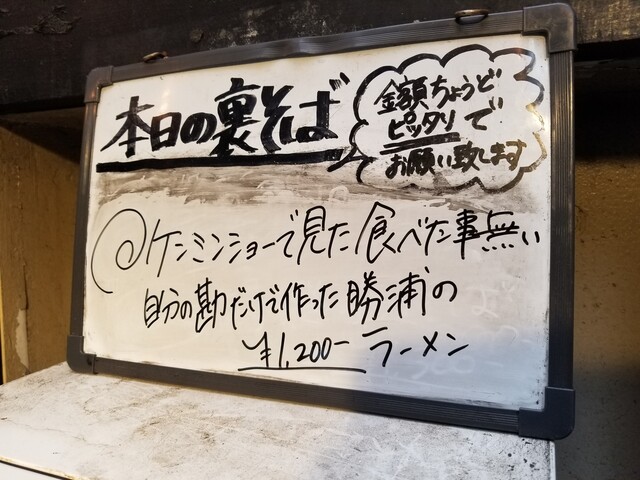 本日の裏そば
金額ちょうど
ピッタリで
お願い致します
@ケンミンショーで見た食べた事無い
自分の勘だけで作った勝浦の
¥1,200- ラーメン